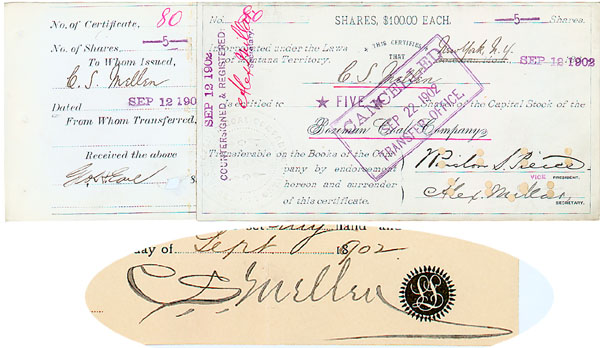 No. of Certificate, 80
No. of Shares, 5
To Whom Issued,
C. S. Mellen
Dated SEP 12 190
From Whom Transferred,
Received the above
Geo. H. Earl
No. 80 SHARES, $100.00 EACH. 5 Shares.
Incorporated under the Laws
of Montana Territory.
THIS CERTIFIES
THAT
New York, N.Y.
SEP 12 1902
C. S. Mellen
is entitled to ★ FIVE Shares of the Capital Stock of the
Bozeman Coal Company
Transferable on the Books of the Com-
pany by endorsement
hereon and surrender
of this certificate.
Winslow S. Pierce
VICE PRESIDENT.
Alex. Millar
SECRETARY.
SEP 12 1902
COUNTERSIGNED & REGISTERED.
Alex Millar
CANCELLED
SEP 22 1902
TRANSFER OFFICE.
set my hand and
day of Sept 1902.
C S Mellen
LS